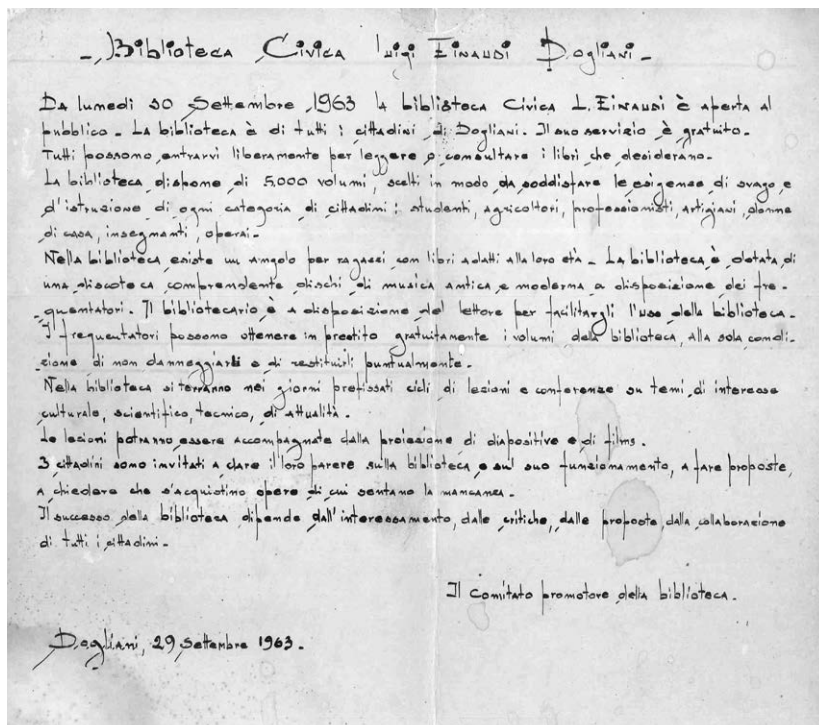 - Biblioteca Civica Luigi Einaudi Dogliani -
Da lunedi 30 Settembre 1963 la biblioteca Civica L. Einaudi è aperta al
pubblico - La biblioteca è di tutti i cittadini di Dogliani. Il suo servizio è gratuito -
Tutti possono entrarvi liberamente per leggere o consultare i libri che desiderano -
La biblioteca dispone di 5.000 volumi, scelti in modo da soddisfare le esigenze di svago e
d'istruzione di ogni categoria di cittadini: studenti, agricoltori, professionisti, artigiani, donne
di casa, insegnanti, operai -
Nella biblioteca esiste un angolo per ragazzi con libri adatti alla loro età - La biblioteca è dotata di
una discoteca comprendente dischi di musica antica e moderna a disposizione dei fre-
quentatori. Il bibliotecario è a disposizione del lettore per facilitargli l'uso della biblioteca -
I frequentatori possono ottenere in prestito gratuitamente i volumi della biblioteca, alla sola condi-
zione di non danneggiarli e di restituirli puntualmente -
Nella biblioteca si terranno nei giorni prefissati cicli di lezioni e conferenze su temi di interesse
culturale, scientifico, tecnico, di attualità.
Le lezioni potranno essere accompagnate dalla proiezione di diapositive e di films.
I cittadini sono invitati a dare il loro parere sulla biblioteca e sul suo funzionamento, a fare proposte,
a chiedere che s'acquistino opere di cui sentano la mancanza -
Il successo della biblioteca dipende dall'interessamento, dalle critiche, dalle proposte, dalla collaborazione
di tutti i cittadini -
Il Comitato promotore della biblioteca.
Dogliani, 29 Settembre 1963.